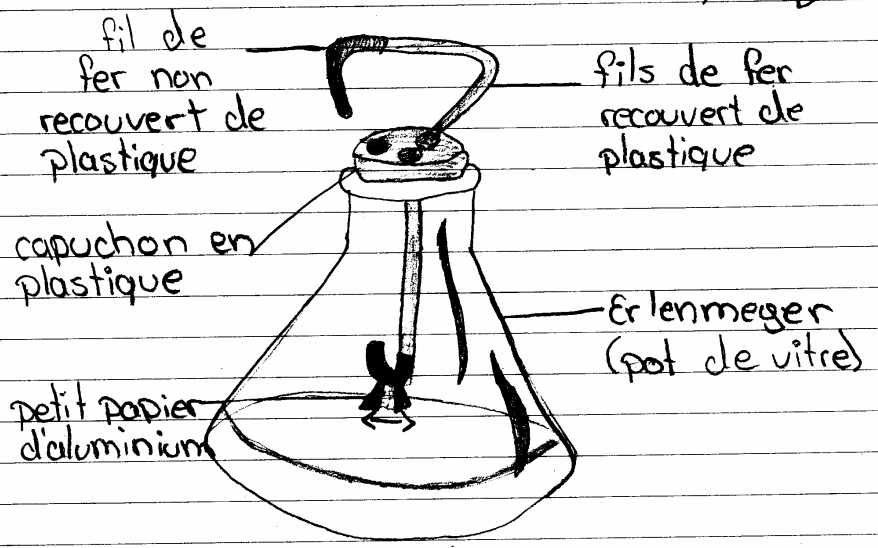 fil de
fer non
recouvert de
plastique
fils de fer
recouvert de
plastique
capuchon en
plastique
Erlenmeyer
(pot de vitre)
petit papier
d'aluminium